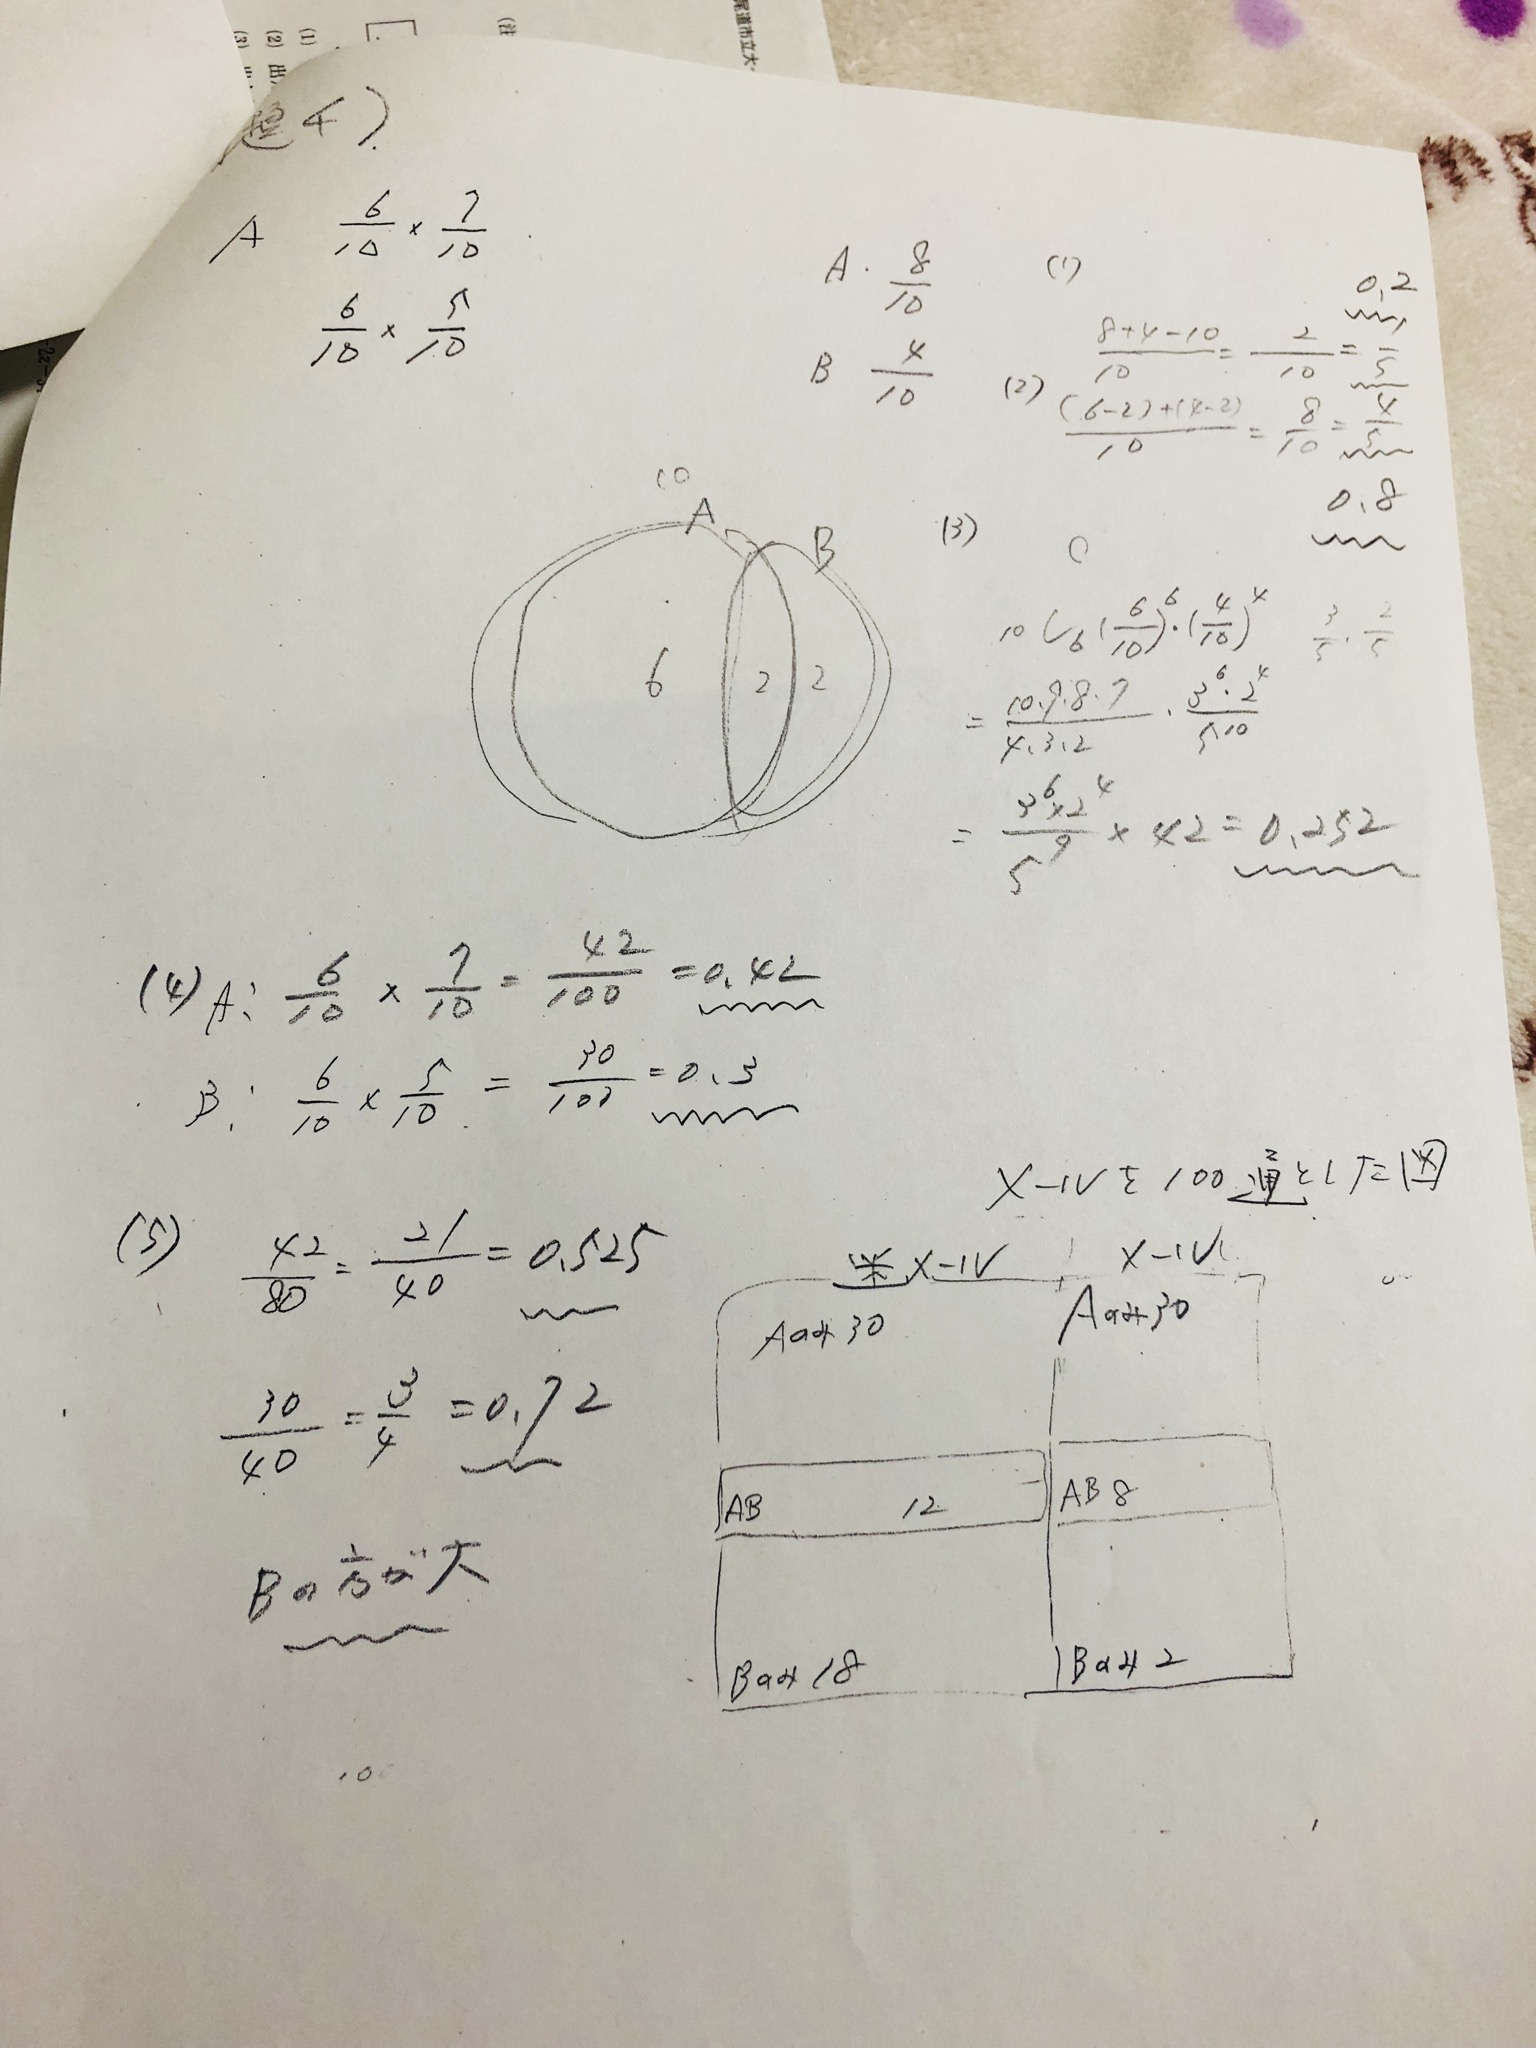 尾道市立大
(1)
(2) 出
(3)
題4)
A 6/10 × 7/10
6/10 × 5/10
A. 8/10
B 4/10
(1)
(8+4-10)/10 = 2/10 = 1/5
0.2
(2) ((6-2)+(4-2))/10 = 8/10 = 4/5
0.8
10
A
B
6 2 2
(3)
10C6(6/10)^6・(4/10)^4
3/5・2/5
= 10.9.8.7/4.3.2・3^6・2^4/5^10
= 3^6×2^4/5^9 × 42 = 0.252
(4) A: 6/10 × 7/10 = 42/100 = 0.42
B: 6/10 × 5/10 = 30/100 = 0.3
(5) 42/80 = 21/40 = 0.525
30/40 = 3/4 = 0.72
Bの方が大
メールを100通とした図
米メール メール
Aのみ30 Aのみ30
AB 12 AB 8
Bのみ18 Bのみ2